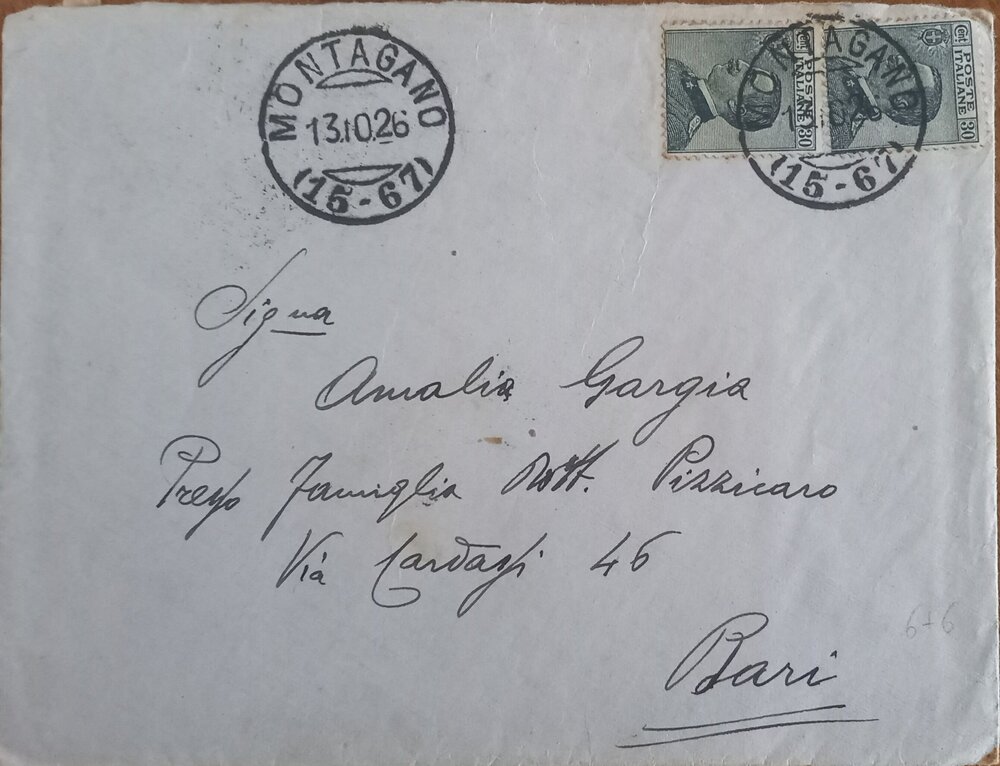 MONTAGANO
13.10.26
(15-67)
Cent. 30
POSTE
ITALIANE
Cent. 30
POSTE
ITALIANE
MONTAGANO
(15-67)
Signa
Amalia Gargia
Presso Famiglia Dott. Pizzicaro
Via Cardassi 46
Bari
6+6